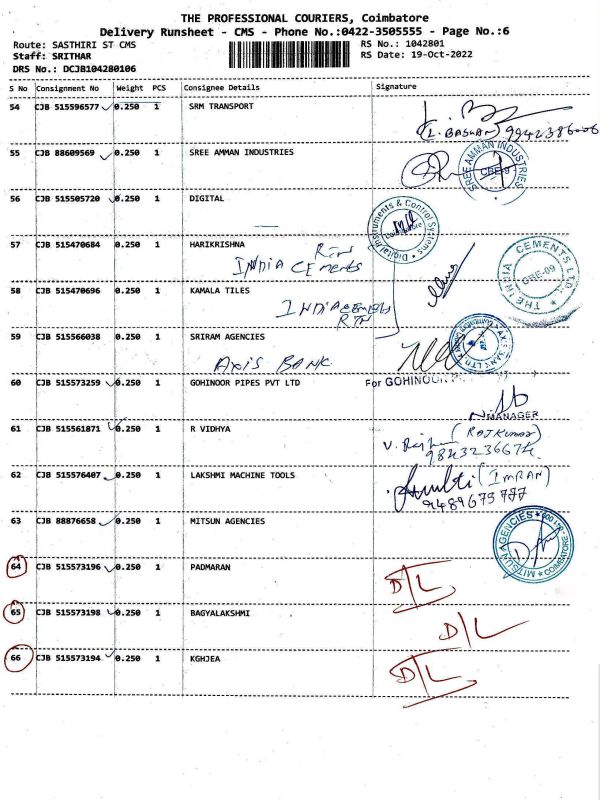 THE PROFESSIONAL COURIERS, Coimbatore
Delivery Runsheet - CMS - Phone No.:0422-3505555 - Page No.:6
Route: SASTHIRI ST CMS
RS No.: 1042801
Staff: SRITHAR
RS Date: 19-Oct-2022
DRS No.: DCJB104280106
S No Consignment No Weight PCS Consignee Details Signature
54 CJB 515596577 0.250 1 SRM TRANSPORT
(L. BASKAN) 9942386006
55 CJB 88609569 0.250 1 SREE AMMAN INDUSTRIES
SREE AMMAN INDUSTRIES CBE-9
56 CJB 515505720 0.250 1 DIGITAL
Digital Instruments & Control Systems
57 CJB 515470684 0.250 1 HARIKRISHNA
INDIA CEMENTS
THE INDIA CEMENTS LTD. CBE-09
58 CJB 515470696 0.250 1 KAMALA TILES
INDIA CEMENTS
59 CJB 515566038 0.250 1 SRIRAM AGENCIES
AXIS BANK
AXIS BANK LTD
60 CJB 515573259 0.250 1 GOHINOOR PIPES PVT LTD
For GOHINOOR
MANAGER
61 CJB 515561871 0.250 1 R VIDHYA
(RAJKUMAR)
62 CJB 515576407 0.250 1 LAKSHMI MACHINE TOOLS
(IMRAN)
9489675777
63 CJB 88876658 0.250 1 MITSUN AGENCIES
MITSUN AGENCIES COIMBATORE
64 CJB 515573196 0.250 1 PADMARAN
D/L
65 CJB 515573198 0.250 1 BAGYALAKSHMI
D/L
66 CJB 515573194 0.250 1 KGHJEA
D/L